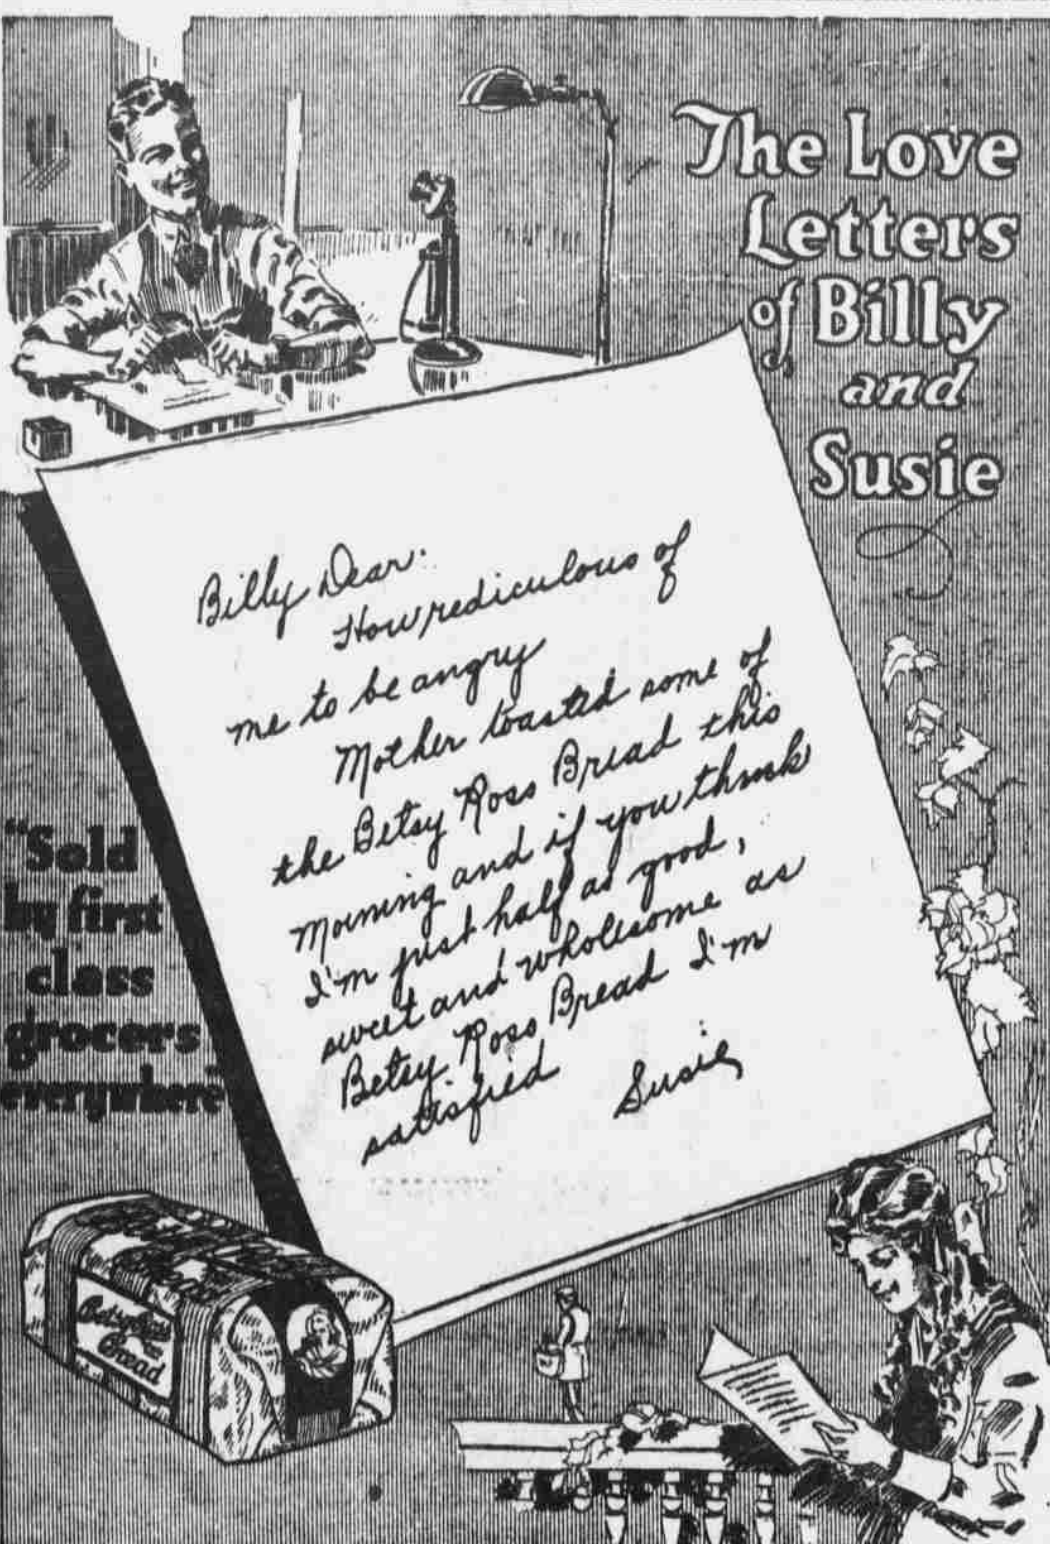 The Love
Letters
of Billy
and
Susie
Billy Dear:
How rediculous of
me to be angry
Mother toasted some of
the Betsy Ross Bread this
morning and if you think
I'm just half as good,
sweet and wholesome as
Betsy Ross Bread I'm
satisfied
Susie
"Sold
by first
class
grocers
everywhere"
Betsy Ross
Bread